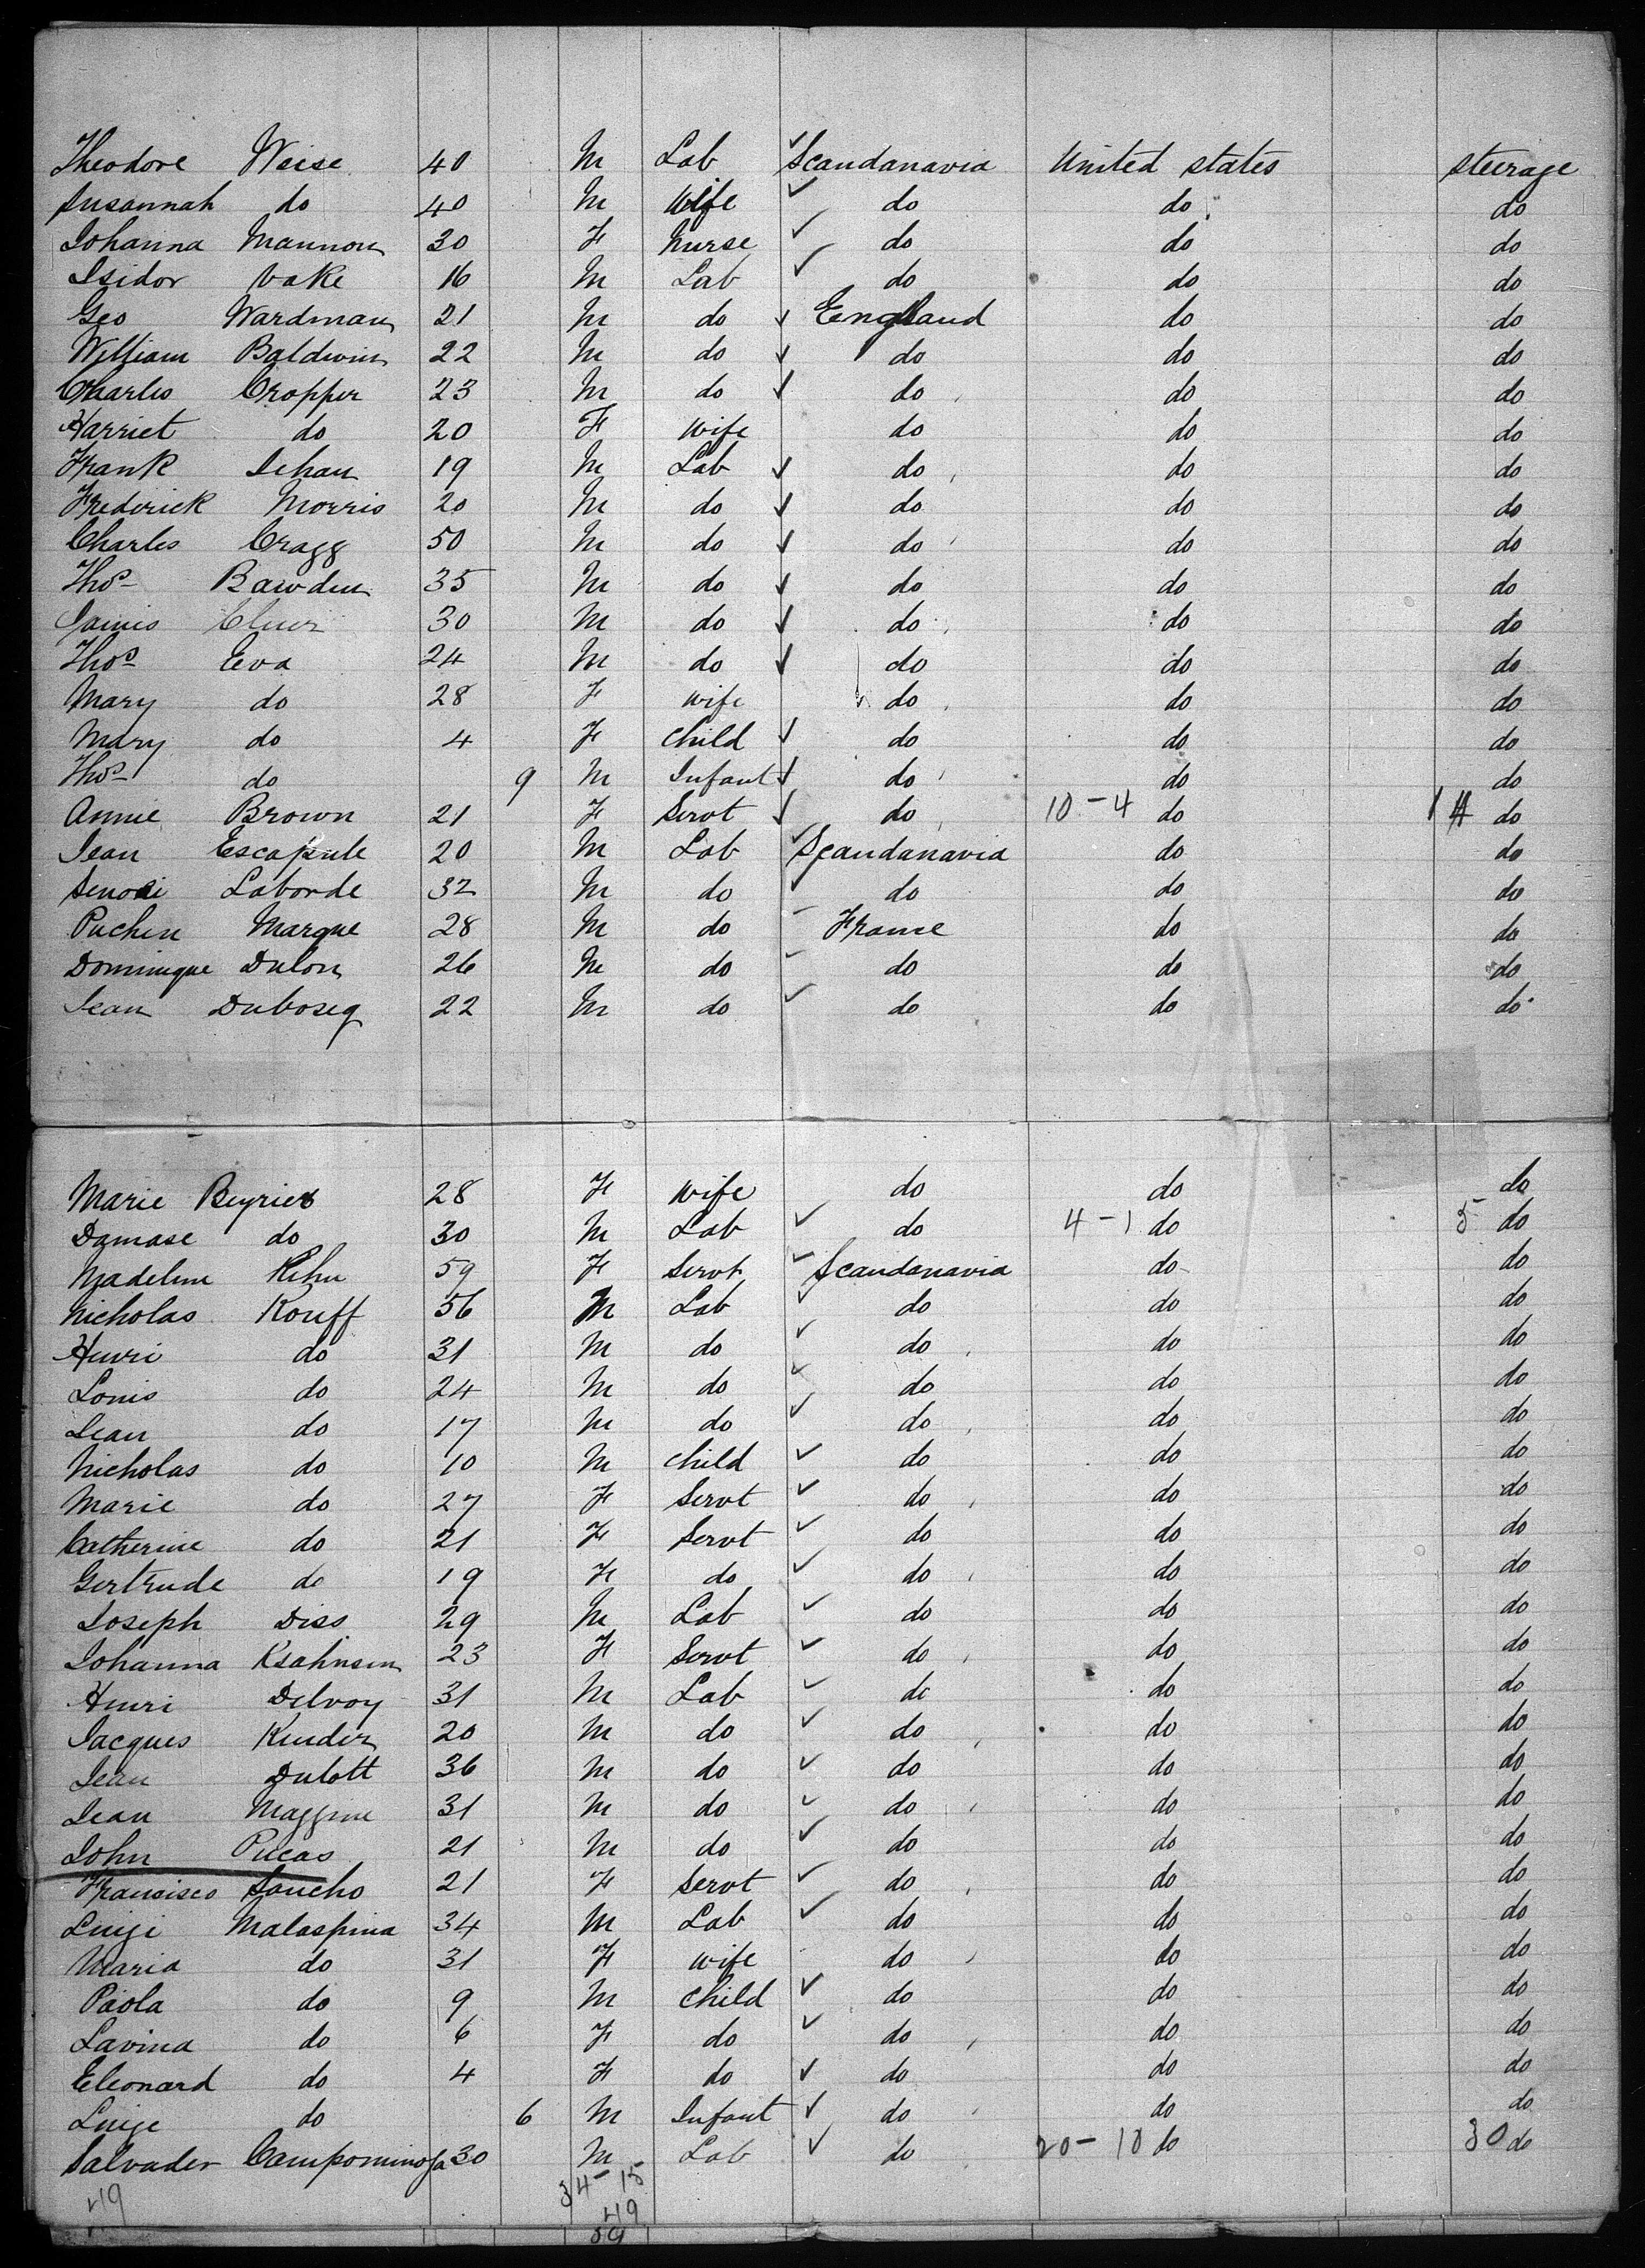 Theodore Weise 40 M Lab ✓ Scandanavia United states steerage
Susannah do 40 M Wife ✓ do do do
Johanna Mannon 30 F Nurse ✓ do do do
Isidor Vake 16 M Lab ✓ do do do
Geo Wardman 21 M do ✓ England do do
William Baldwin 22 M do ✓ do do do
Charles Cropper 23 M do ✓ do do do
Harriet do 20 F Wife do do do
Frank Dehan 19 M Lab ✓ do do do
Frederick Morris 20 M do ✓ do do do
Charles Cragg 50 M do ✓ do do do
Thos Bawden 35 M do ✓ do do do
James 30 M do ✓ do do do
Thos Eva 24 M do ✓ do do do
Mary do 28 F wife do do do
Mary do 4 F child ✓ do do do
Thos do 9 M Infant ✓ do do do
Annie Brown 21 F Servt ✓ do 10-4 do do
Jean Escapule 20 M Lab ✓ Scandanavia do do
Laborde 32 M do ✓ do do do
Puchen Marque 28 M do - France do do
Dominique Dulon 26 M do - do do do
Jean Duboseq 22 M do ✓ do do do
Marie Beyries 28 F Wife do do do
Damase do 30 M Lab ✓ do 4-1 do 5 do
Madeline Kihn 59 F Servt ✓ Scandanavia do do
Nicholas Kouff 56 M Lab ✓ do do do
Henri do 31 M do ✓ do do do
Louis do 24 M do ✓ do do do
Jean do 17 M do ✓ do do do
Nicholas do 10 M child ✓ do do do
Marie do 27 F Servt ✓ do do do
Catherine do 21 F Servt ✓ do do do
Gertrude do 19 F do ✓ do do do
Joseph Diss 29 M Lab ✓ do do do
Johanna Ksahnsen 23 F Servt ✓ do do do
Henri Delvoy 31 M Lab ✓ do do do
Jacques Kinder 20 M do ✓ do do do
Jean Dulott 36 M do ✓ do do do
Jean Maggine 31 M do ✓ do do do
John Pucas 21 M do ✓ do do do
Francisco Soncho 21 F Servt ✓ do do do
Luigi Malaspina 34 M Lab ✓ do do do
Maria do 31 F wife do do do
Paola do 9 M child ✓ do do do
Lavina do 6 F do ✓ do do do
Eleonard do 4 F do ✓ do do do
Luige do 6 M Infant ✓ do do do
Salvader Campominosa 30 M Lab ✓ do 20-10 do 30 do
49 34-15
49